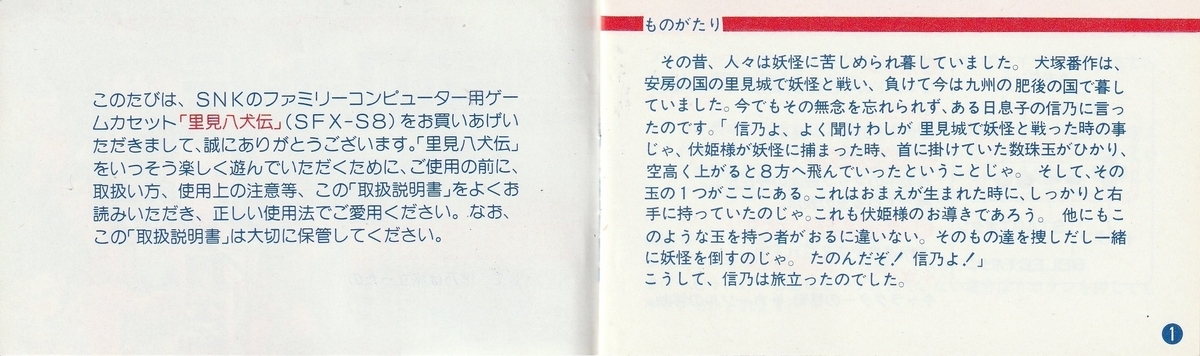 このたびは、SNKのファミリーコンピューター用ゲー
ムカセット「里見八犬伝」(SFX-S8)をお買いあげい
ただきまして、誠にありがとうございます。「里見八犬伝」
をいっそう楽しく遊んでいただくために、ご使用の前に、
取扱い方、使用上の注意等、この「取扱説明書」をよくお
読みいただき、正しい使用法でご愛用ください。なお、
この「取扱説明書」は大切に保管してください。
ものがたり
その昔、人々は妖怪に苦しめられ暮していました。 犬塚番作は、
安房の国の里見城で妖怪と戦い、負けて今は九州の肥後の国で暮し
ていました。今でもその無念を忘れられず、ある日息子の信乃に言っ
たのです。「 信乃よ、よく聞け わしが 里見城で妖怪と戦った時の事
じゃ、伏姫様が妖怪に捕まった時、首に掛けていた数珠玉がひかり、
空高く上がると8方へ飛んでいったということじゃ。 そして、その
玉の1つがここにある。これはおまえが生まれた時に、しっかりと右
手に持っていたのじゃ。これも伏姫様のお導きであろう。 他にもこ
のような玉を持つ者がおるに違いない。そのもの達を捜しだし一緒
に妖怪を倒すのじゃ。 たのんだぞ! 信乃よ!」
こうして、信乃は旅立ったのでした。
1